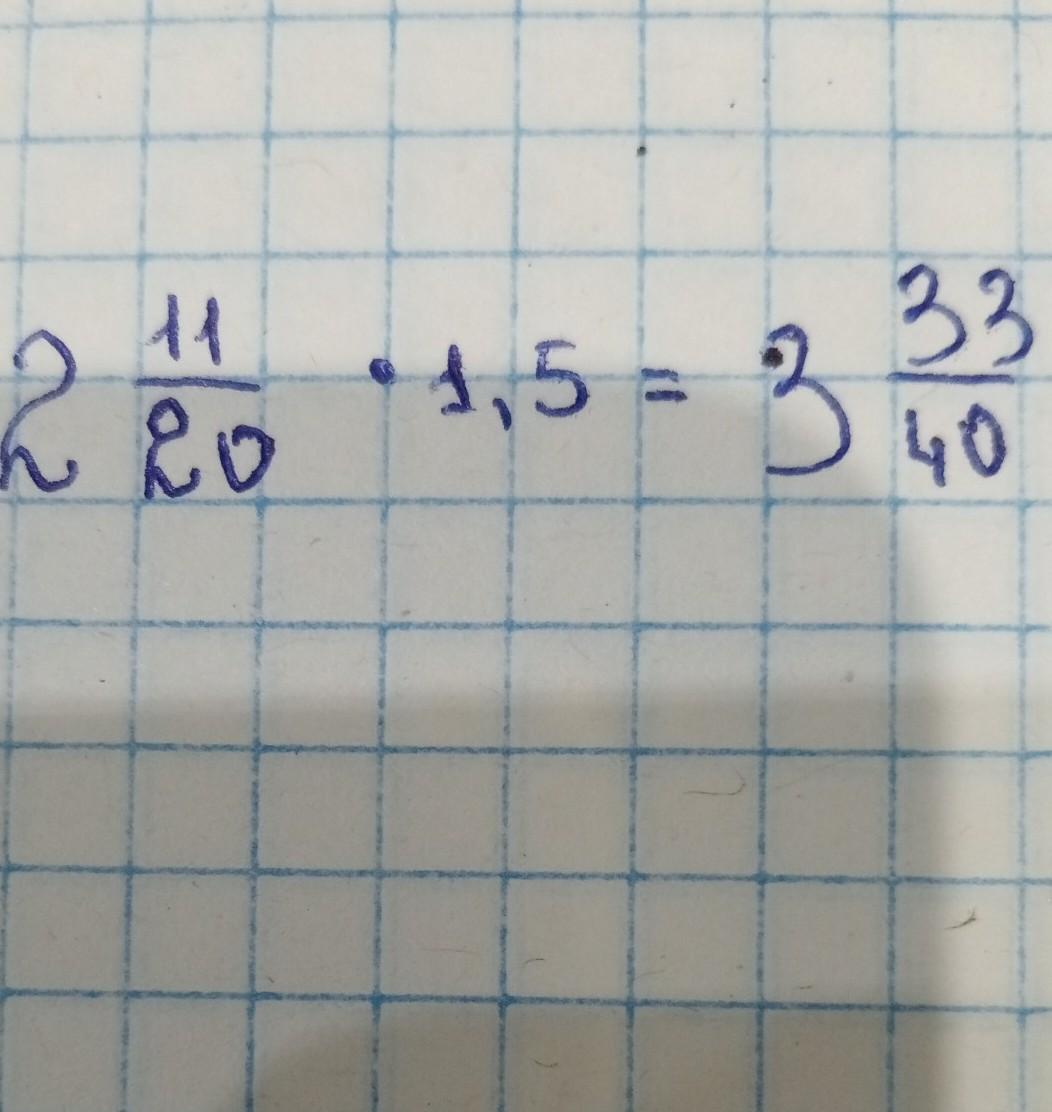 2 11/20 · 1,5 = 3 33/40